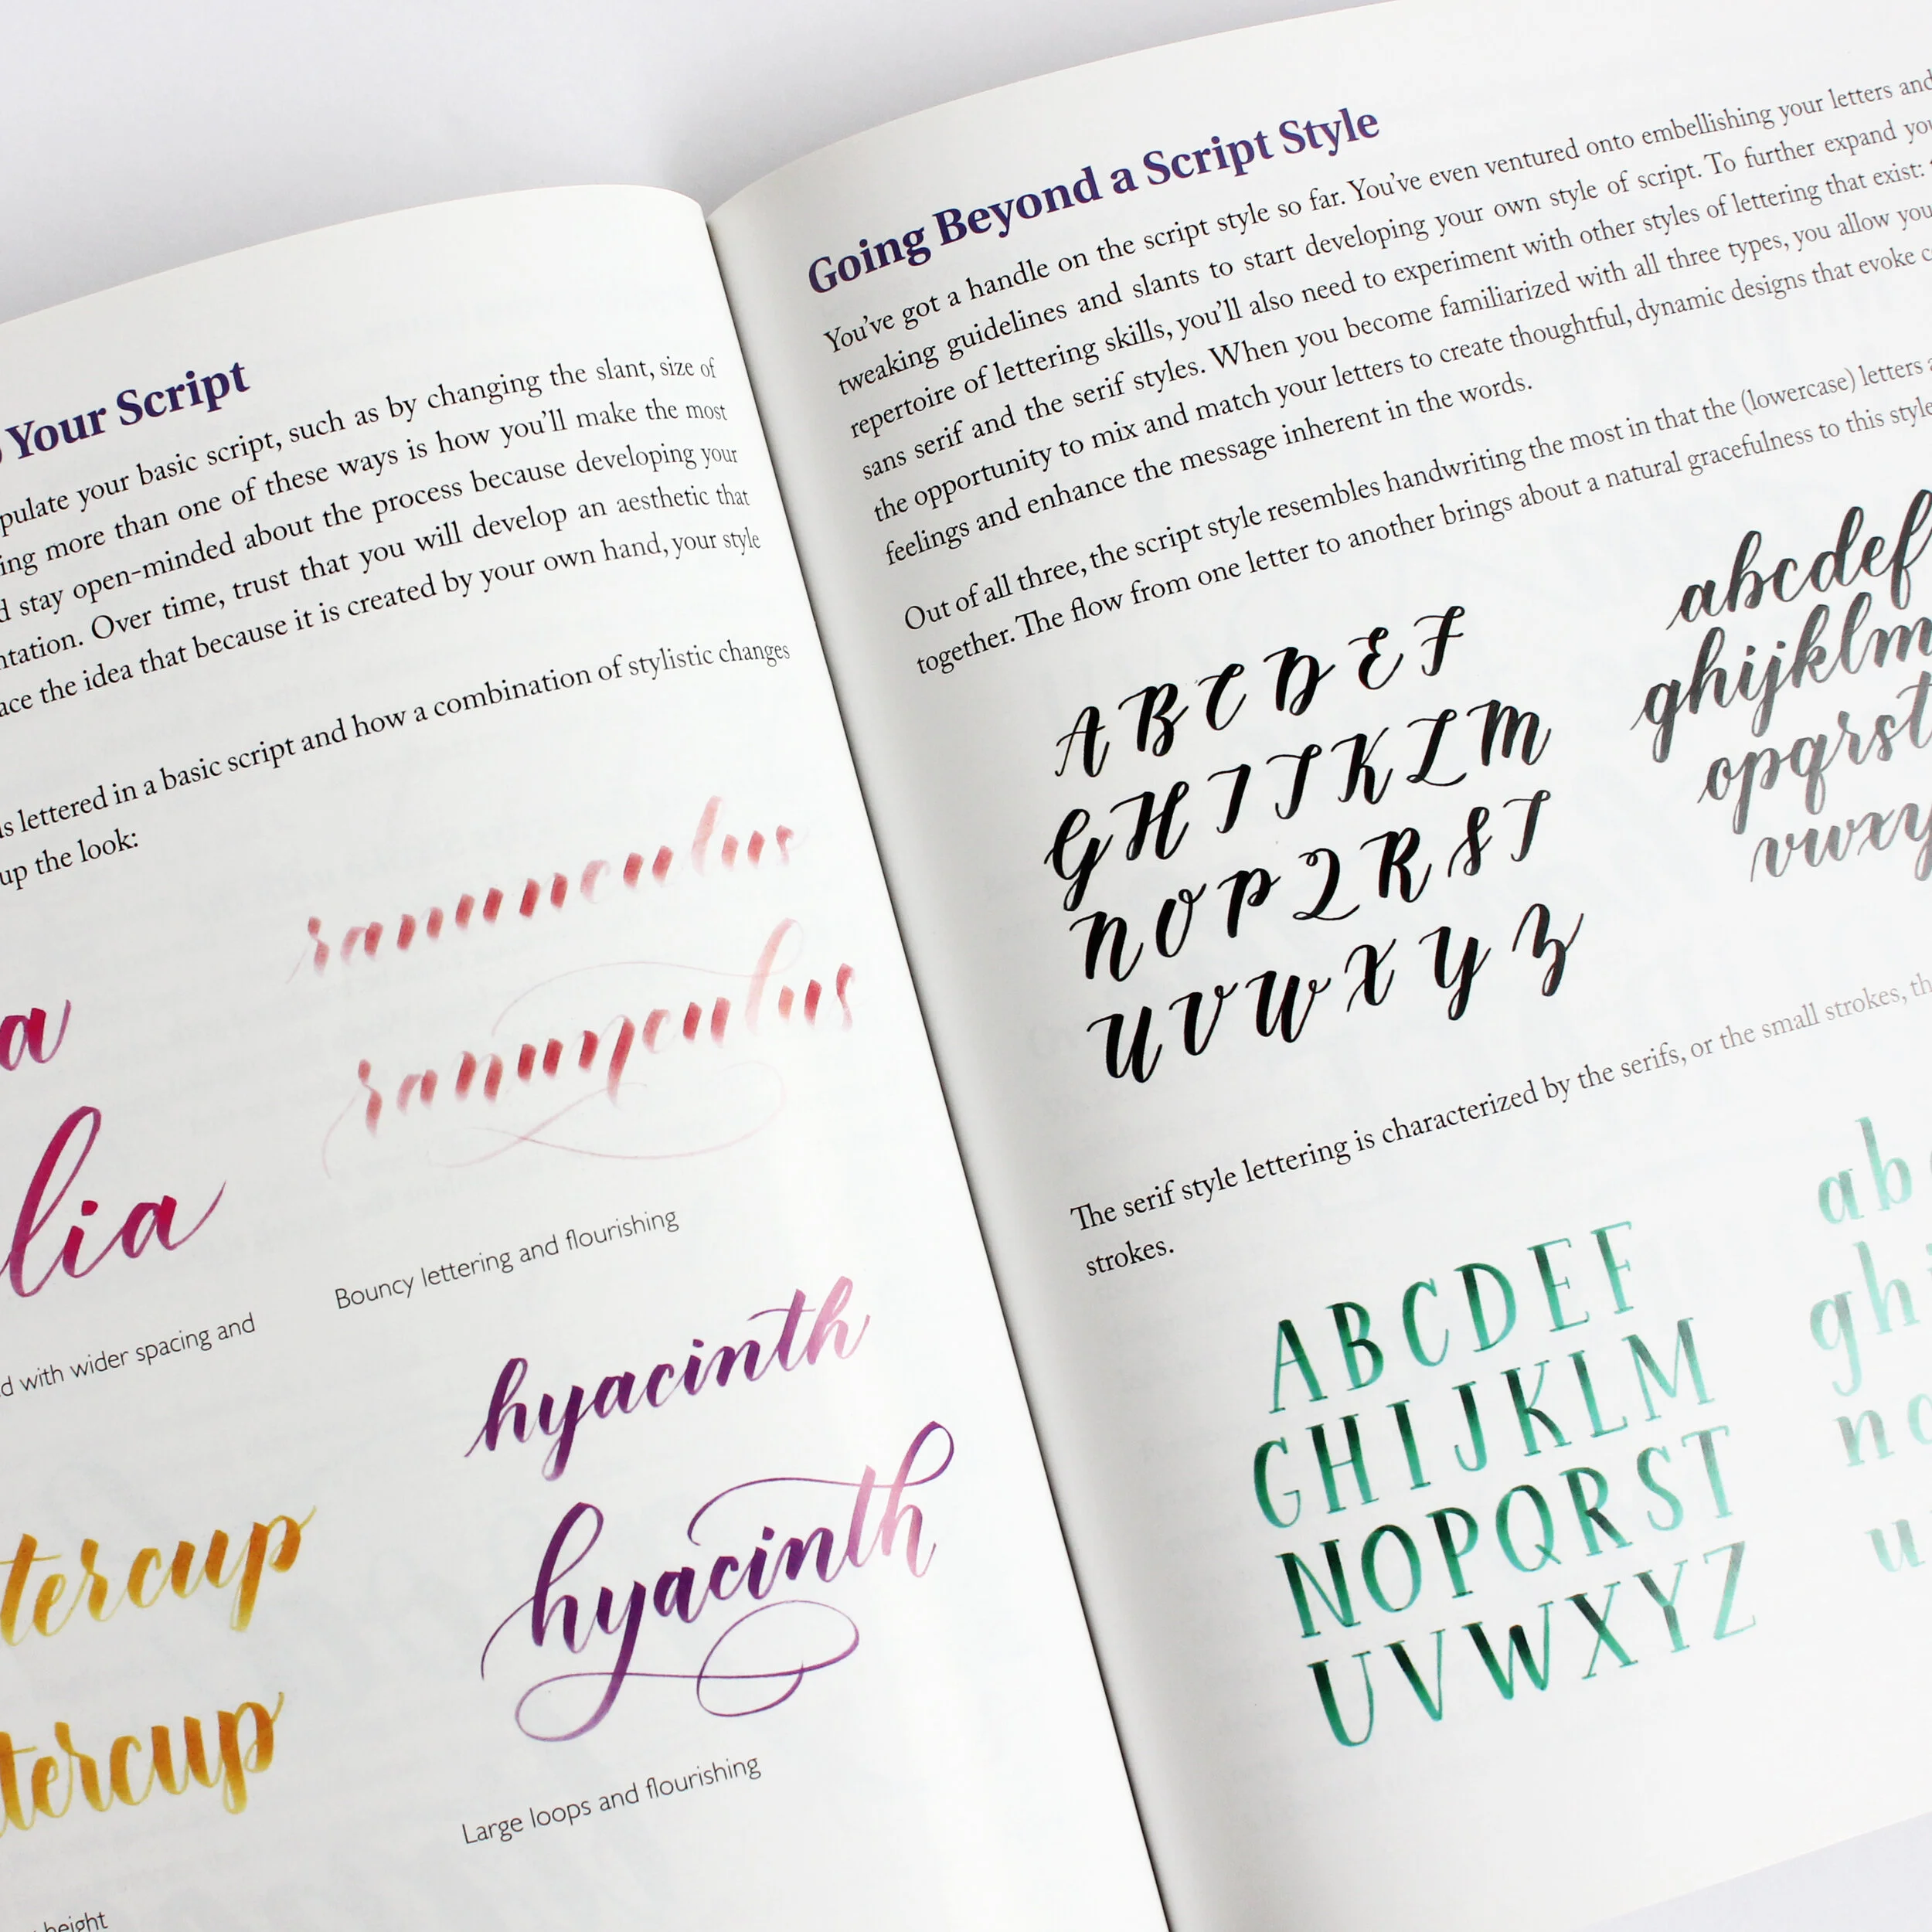 Your Script
your basic script, such as by changing the slant, size of
more than one of these ways is how you'll make the most
stay open-minded about the process because developing your
Over time, trust that you will develop an aesthetic that
the idea that because it is created by your own hand, your style
lettered in a basic script and how a combination of stylistic changes
up the look:
ranunculus
ranunculus
Bouncy lettering and flourishing
a
lia
with wider spacing and
hyacinth
hyacinth
Large loops and flourishing
tercup
tercup
height
Going Beyond a Script Style
You've got a handle on the script style so far. You've even ventured onto embellishing your letters and
tweaking guidelines and slants to start developing your own style of script. To further expand
repertoire of lettering skills, you'll also need to experiment with other styles of lettering that exist:
sans serif and the serif styles. When you become familiarized with all three types, you allow
the opportunity to mix and match your letters to create thoughtful, dynamic designs that evoke
feelings and enhance the message inherent in the words.
Out of all three, the script style resembles handwriting the most in that the (lowercase) letters
together. The flow from one letter to another brings about a natural gracefulness to this style
A B C D E F
G H I J K L M
N O P Q R S T
U V W X Y Z
abcdef
ghijklm
opqrst
vwxy
The serif style lettering is characterized by the serifs, or the small strokes,
strokes.
A B C D E F
G H I J K L M
N O P Q R S T
U V W X Y Z
a b
g h
n
u